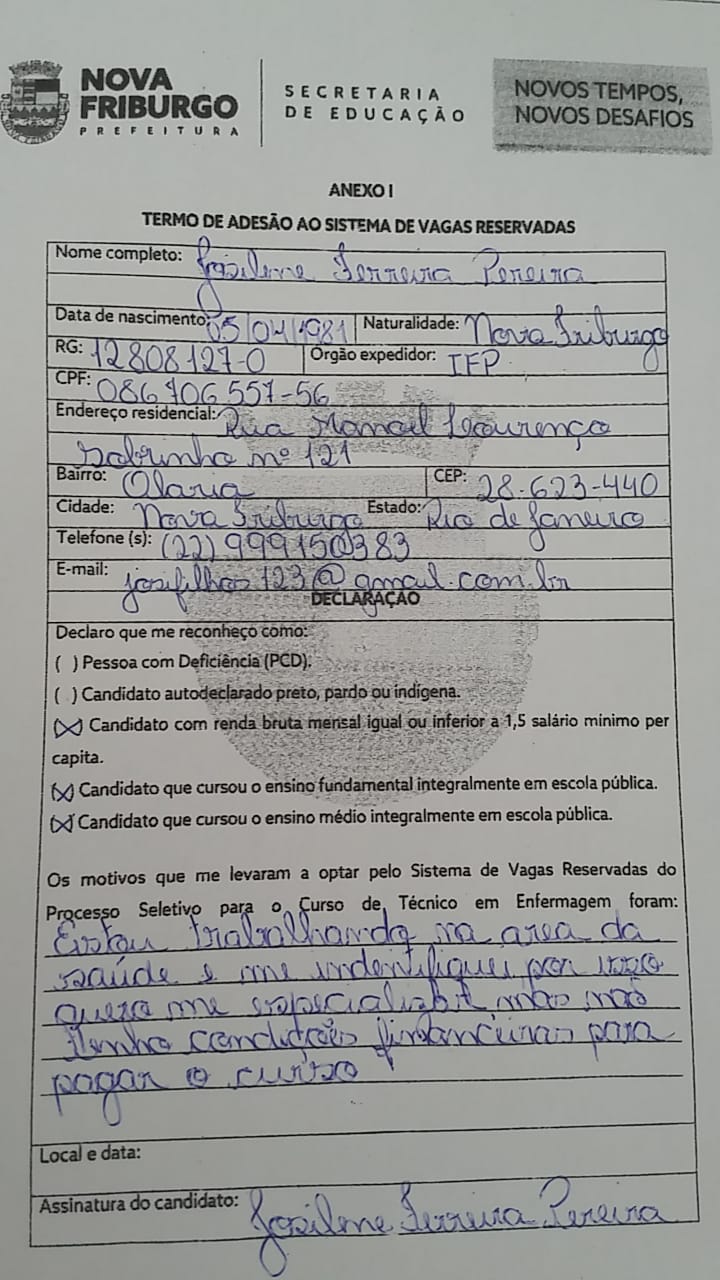 NOVA
FRIBURGO
PREFEITURA
SECRETARIA
DE EDUCAÇÃO
NOVOS TEMPOS,
NOVOS DESAFIOS
ANEXO I
TERMO DE ADESÃO AO SISTEMA DE VAGAS RESERVADAS
Nome completo: Josilene Ferreira Pereira
Data de nascimento: 05/04/1981 Naturalidade: Nova Friburgo
RG: 12808127-0 Órgão expedidor: IFP
CPF: 086706557-56
Endereço residencial: Rua Manoel Lourenço
Sobrinho nº 121
Bairro: Olaria CEP: 28-623-440
Cidade: Nova Friburgo Estado: Rio de Janeiro
Telefone (s): (22) 999150383
E-mail: josifilhos123@gmail.com.br
DECLARAÇÃO
Declaro que me reconheço como:
( ) Pessoa com Deficiência (PCD).
( ) Candidato autodeclarado preto, pardo ou indígena.
(X) Candidato com renda bruta mensal igual ou inferior a 1,5 salário mínimo per
capita.
(X) Candidato que cursou o ensino fundamental integralmente em escola pública.
(X) Candidato que cursou o ensino médio integralmente em escola pública.
Os motivos que me levaram a optar pelo Sistema de Vagas Reservadas do
Processo Seletivo para o Curso de Técnico em Enfermagem foram:
Estou trabalhando na area da
saúde e me indentifiquei por isso
quero me mas não
tenho condições financeiras para
pagar o curso
Local e data:
Assinatura do candidato: Josilene Ferreira Pereira